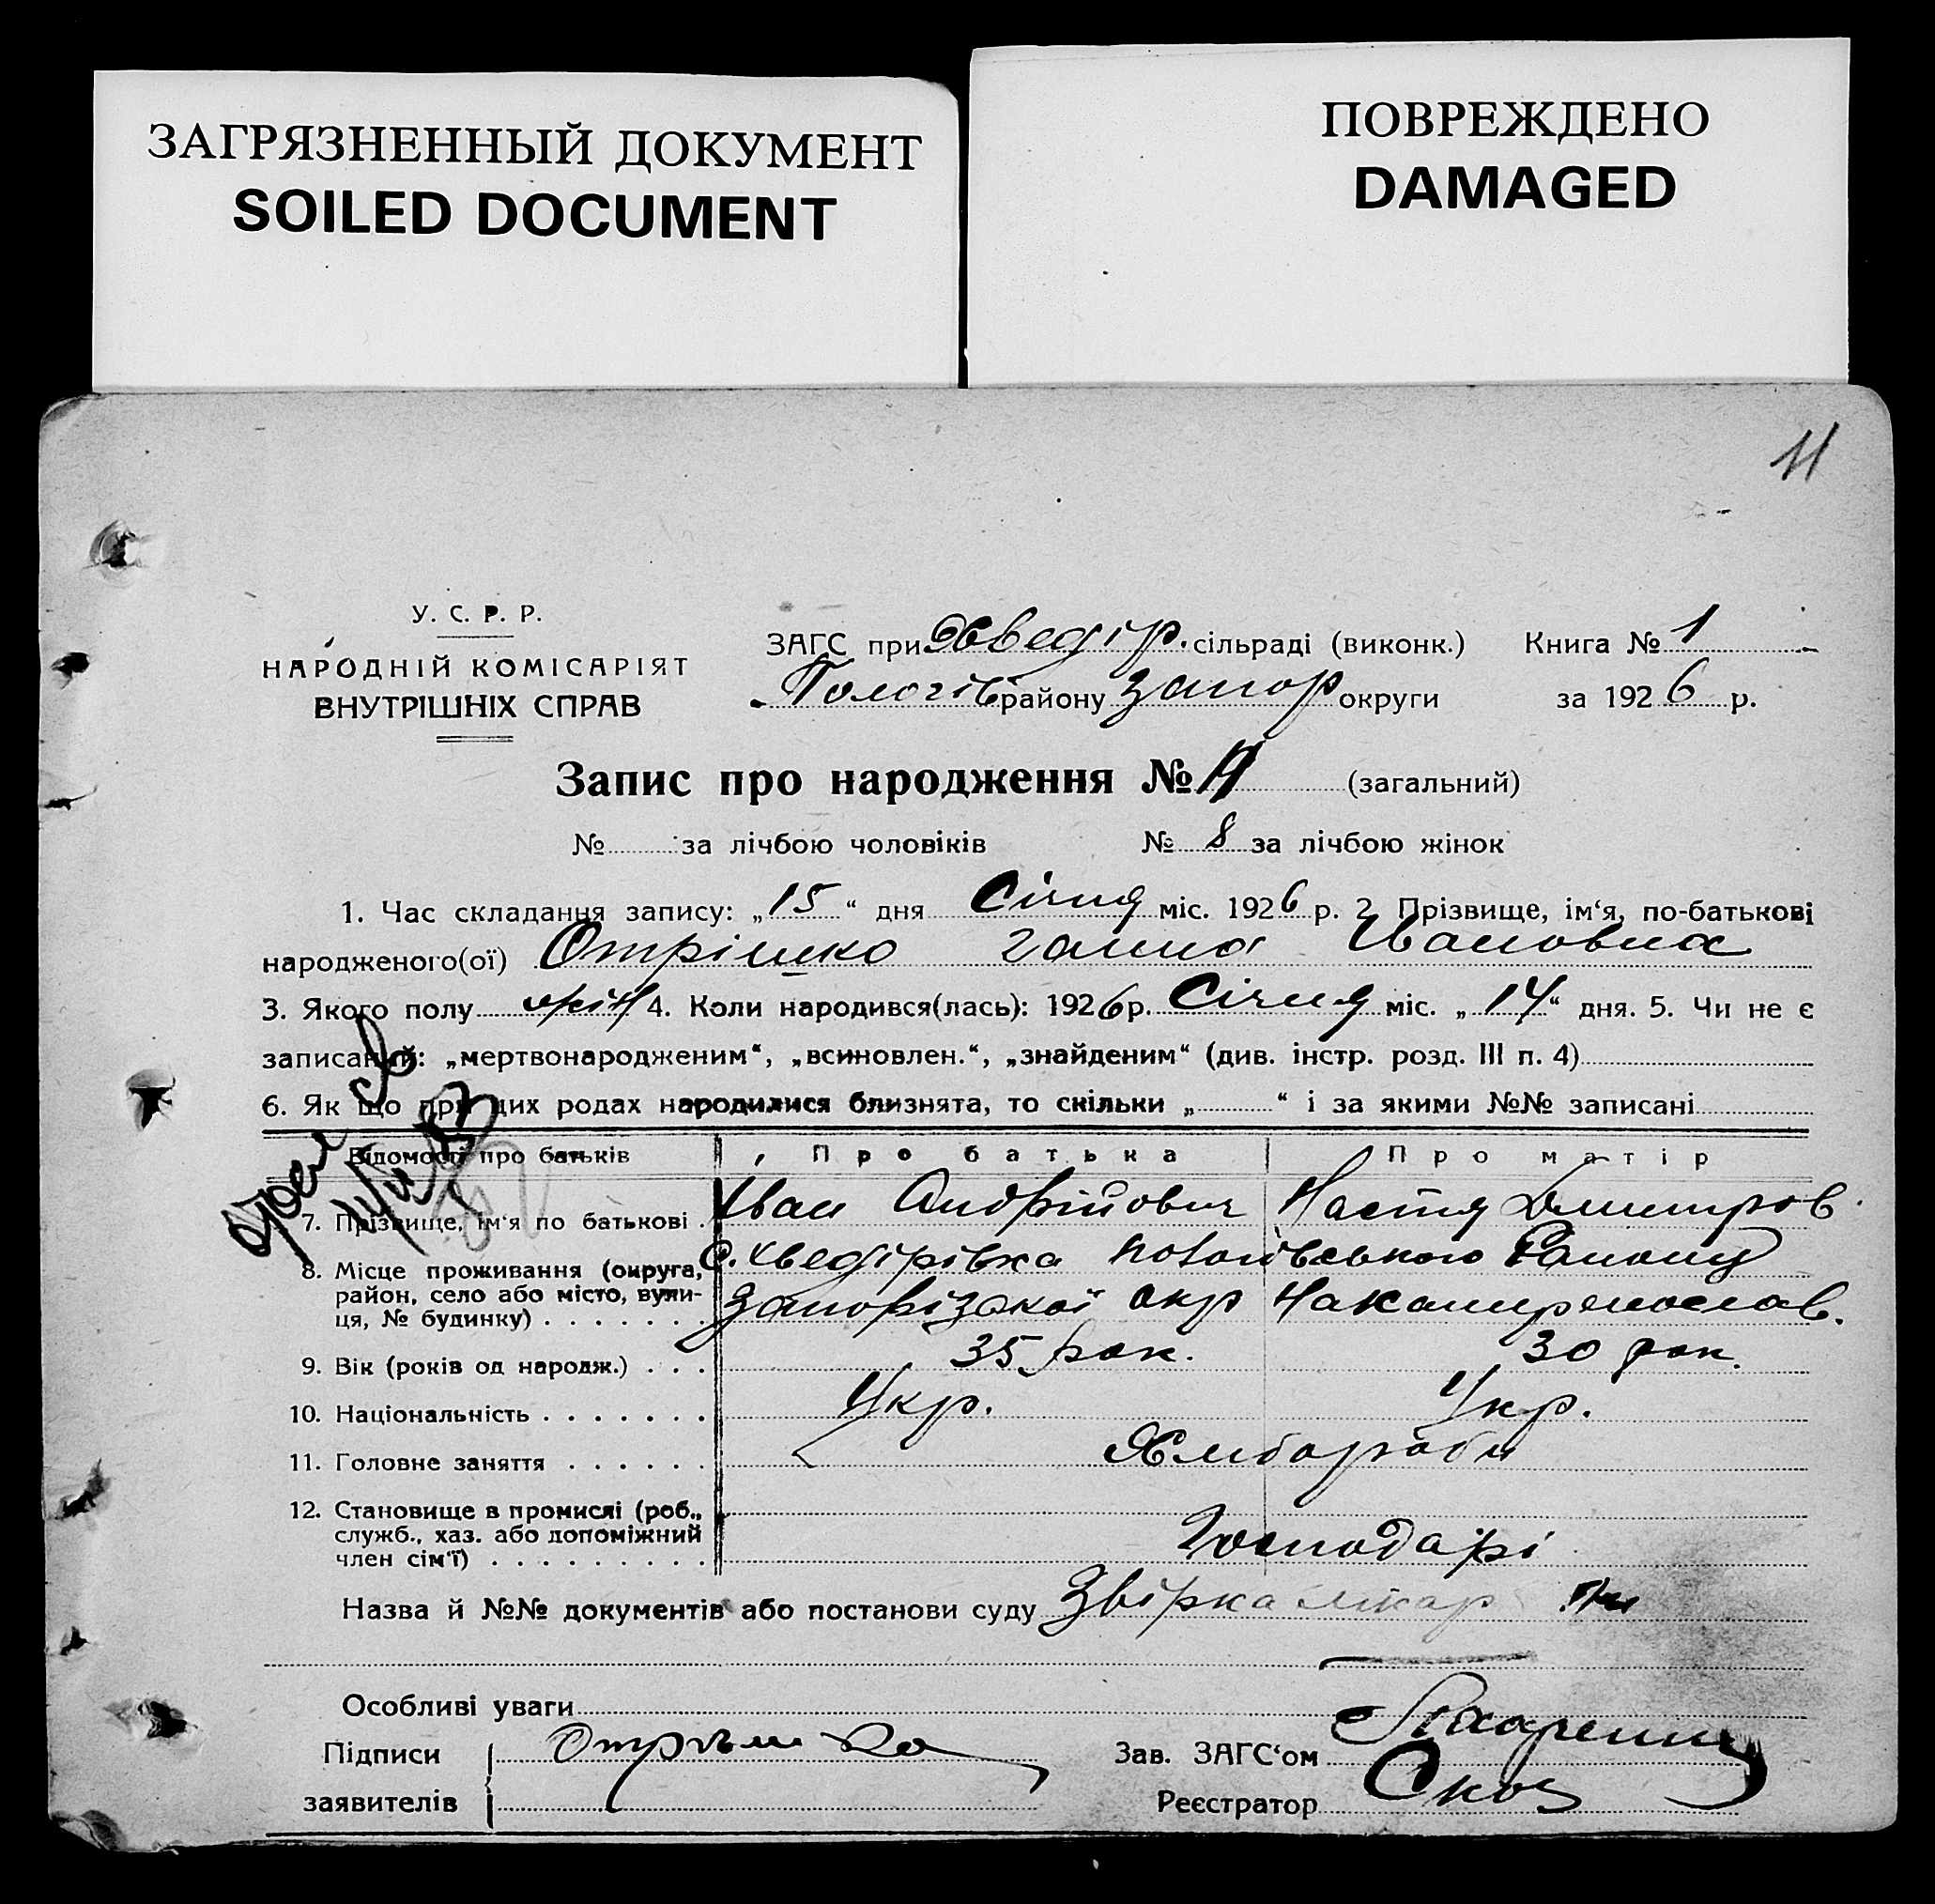 ЗАГРЯЗНЕННЫЙ ДОКУМЕНТ
SOILED DOCUMENT
ПОВРЕЖДЕНО
DAMAGED
11
У. С. Р. Р.
НАРОДНІЙ КОМІСАРІЯТ
ВНУТРІШНІХ СПРАВ
ЗАГС при Хведір. сільраді (виконк.) Книга № 1
Пологів району Запор округи за 1926 р.
Запис про народження № 11 (загальний)
№ за лічбою чоловіків № 8 за лічбою жінок
1. Час складання запису: „15“ дня Січня міс. 1926 р. 2 Прізвище, ім‘я, по-батькові
народженого(ої) Отрішко Ганна Ивановна
3. Якого полу жін 4. Коли народився(лась): 1926 р. Січня міс. „14“ дня. 5. Чи не є
записаний: „мертвонародженим“, „всиновлен.“, „знайденим“ (див. інстр. розд. III п. 4)
6. Як що при цих родах народилися близнята, то скільки „ “ і за якими №№ записані
Відомості про батьків Про батька Про матір
7. Прізвище, ім‘я по батькові Иван Андрійович Настя Дмитров.
8. Місце проживання (округа, с. Хведірівка Пологівського Району
район, село або місто, вули-
ця, № будинку) Запорізької окр
9. Вік (років од народж.) 35 рок. 30 рок.
10. Національність Укр. Укр.
11. Головне заняття Хлібороби
12. Становище в промислі (роб.,
служб., хаз. або допоміжний
член сім‘ї) Господарі
Назва й №№ документів або постанови суду Звірка лікар
Особливі уваги
Підписи Отрішко Зав. ЗАГС‘ом
заявителів Реєстратор